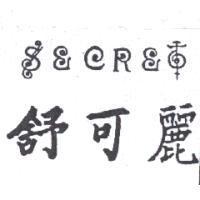 SECRET
舒可麗